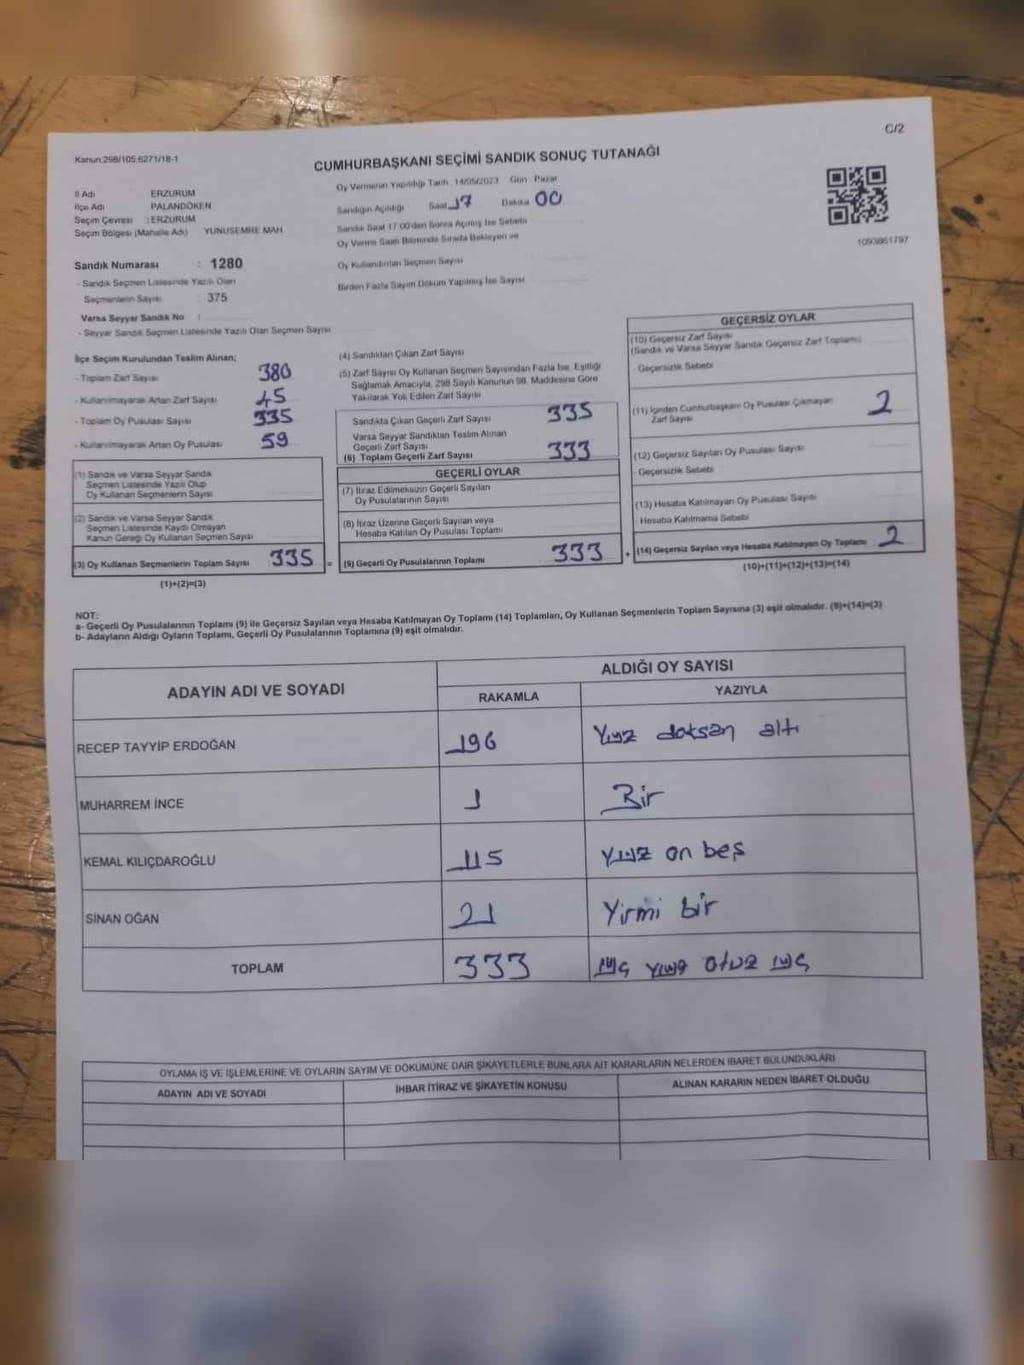 C/2
Kanun:298/105,6271/18-1
CUMHURBAŞKANI SEÇİMİ SANDIK SONUÇ TUTANAĞI
İl Adı ERZURUM
İlçe Adı PALANDÖKEN
Seçim Çevresi :ERZURUM
Seçim Bölgesi (Mahalle Adı) YUNUSEMRE MAH
Sandık Numarası : 1280
- Sandık Seçmen Listesinde Yazılı Olan
Seçmenlerin Sayısı : 375
Varsa Seyyar Sandık No :
- Seyyar Sandık Seçmen Listesinde Yazılı Olan Seçmen Sayısı
Oy Vermenin Yapıldığı Tarih : 14/05/2023 Gün : Pazar
Sandığın Açıldığı Saat 17 Dakika 00
Sandık Saat 17:00'den Sonra Açılmış İse Sebebi
Oy Verme Saati Bitiminde Sırada Bekleyen ve
Oy Kullandırılan Seçmen Sayısı
Birden Fazla Sayım Döküm Yapılmış İse Sayısı
1093861797
İlçe Seçim Kurulundan Teslim Alınan;
- Toplam Zarf Sayısı 380
- Kullanılmayarak Artan Zarf Sayısı 45
- Toplam Oy Pusulası Sayısı 335
- Kullanılmayarak Artan Oy Pusulası 59
(1) Sandık ve Varsa Seyyar Sandık
Seçmen Listesinde Yazılı Olup
Oy Kullanan Seçmenlerin Sayısı
(2) Sandık ve Varsa Seyyar Sandık
Seçmen Listesinde Kaydı Olmayan
Kanun Gereği Oy Kullanan Seçmen Sayısı
(3) Oy Kullanan Seçmenlerin Toplam Sayısı 335 =
(1)+(2)=(3)
(4) Sandıktan Çıkan Zarf Sayısı
(5) Zarf Sayısı Oy Kullanan Seçmen Sayısından Fazla İse, Eşitliği
Sağlamak Amacıyla, 298 Sayılı Kanunun 98. Maddesine Göre
Yakılarak Yok Edilen Zarf Sayısı
Sandıkta Çıkan Geçerli Zarf Sayısı 335
Varsa Seyyar Sandıktan Teslim Alınan
Geçerli Zarf Sayısı
(6) Toplam Geçerli Zarf Sayısı 333
GEÇERLİ OYLAR
(7) İtiraz Edilmeksizin Geçerli Sayılan
Oy Pusulalarının Sayısı
(8) İtiraz Üzerine Geçerli Sayılan veya
Hesaba Katılan Oy Pusulası Toplamı
(9) Geçerli Oy Pusulalarının Toplamı 333 +
GEÇERSİZ OYLAR
(10) Geçersiz Zarf Sayısı
(Sandık ve Varsa Seyyar Sandık Geçersiz Zarf Toplamı)
- Geçersizlik Sebebi
(11) İçinden Cumhurbaşkanı Oy Pusulası Çıkmayan
Zarf Sayısı 2
(12) Geçersiz Sayılan Oy Pusulası Sayısı
- Geçersizlik Sebebi
(13) Hesaba Katılmayan Oy Pusulası Sayısı
- Hesaba Katılmama Sebebi
(14) Geçersiz Sayılan veya Hesaba Katılmayan Oy Toplamı 2
(10)+(11)+(12)+(13)=(14)
NOT:
a- Geçerli Oy Pusulalarının Toplamı (9) ile Geçersiz Sayılan veya Hesaba Katılmayan Oy Toplamı (14) Toplamları, Oy Kullanan Seçmenlerin Toplam Sayısına (3) eşit olmalıdır. (9)+(14)=(3)
b- Adayların Aldığı Oyların Toplamı, Geçerli Oy Pusulalarının Toplamına (9) eşit olmalıdır.
ADAYIN ADI VE SOYADI
ALDIĞI OY SAYISI
RAKAMLA YAZIYLA
RECEP TAYYİP ERDOĞAN 196 Yüz doksan altı
MUHARREM İNCE 1 Bir
KEMAL KILIÇDAROĞLU 115 Yüz on beş
SİNAN OĞAN 21 Yirmi bir
TOPLAM 333 üç yüz otuz üç
OYLAMA İŞ VE İŞLEMLERİNE VE OYLARIN SAYIM VE DÖKÜMÜNE DAİR ŞİKAYETLERLE BUNLARA AİT KARARLARIN NELERDEN İBARET BULUNDUKLARI
ADAYIN ADI VE SOYADI İHBAR İTİRAZ VE ŞİKAYETİN KONUSU ALINAN KARARIN NEDEN İBARET OLDUĞU